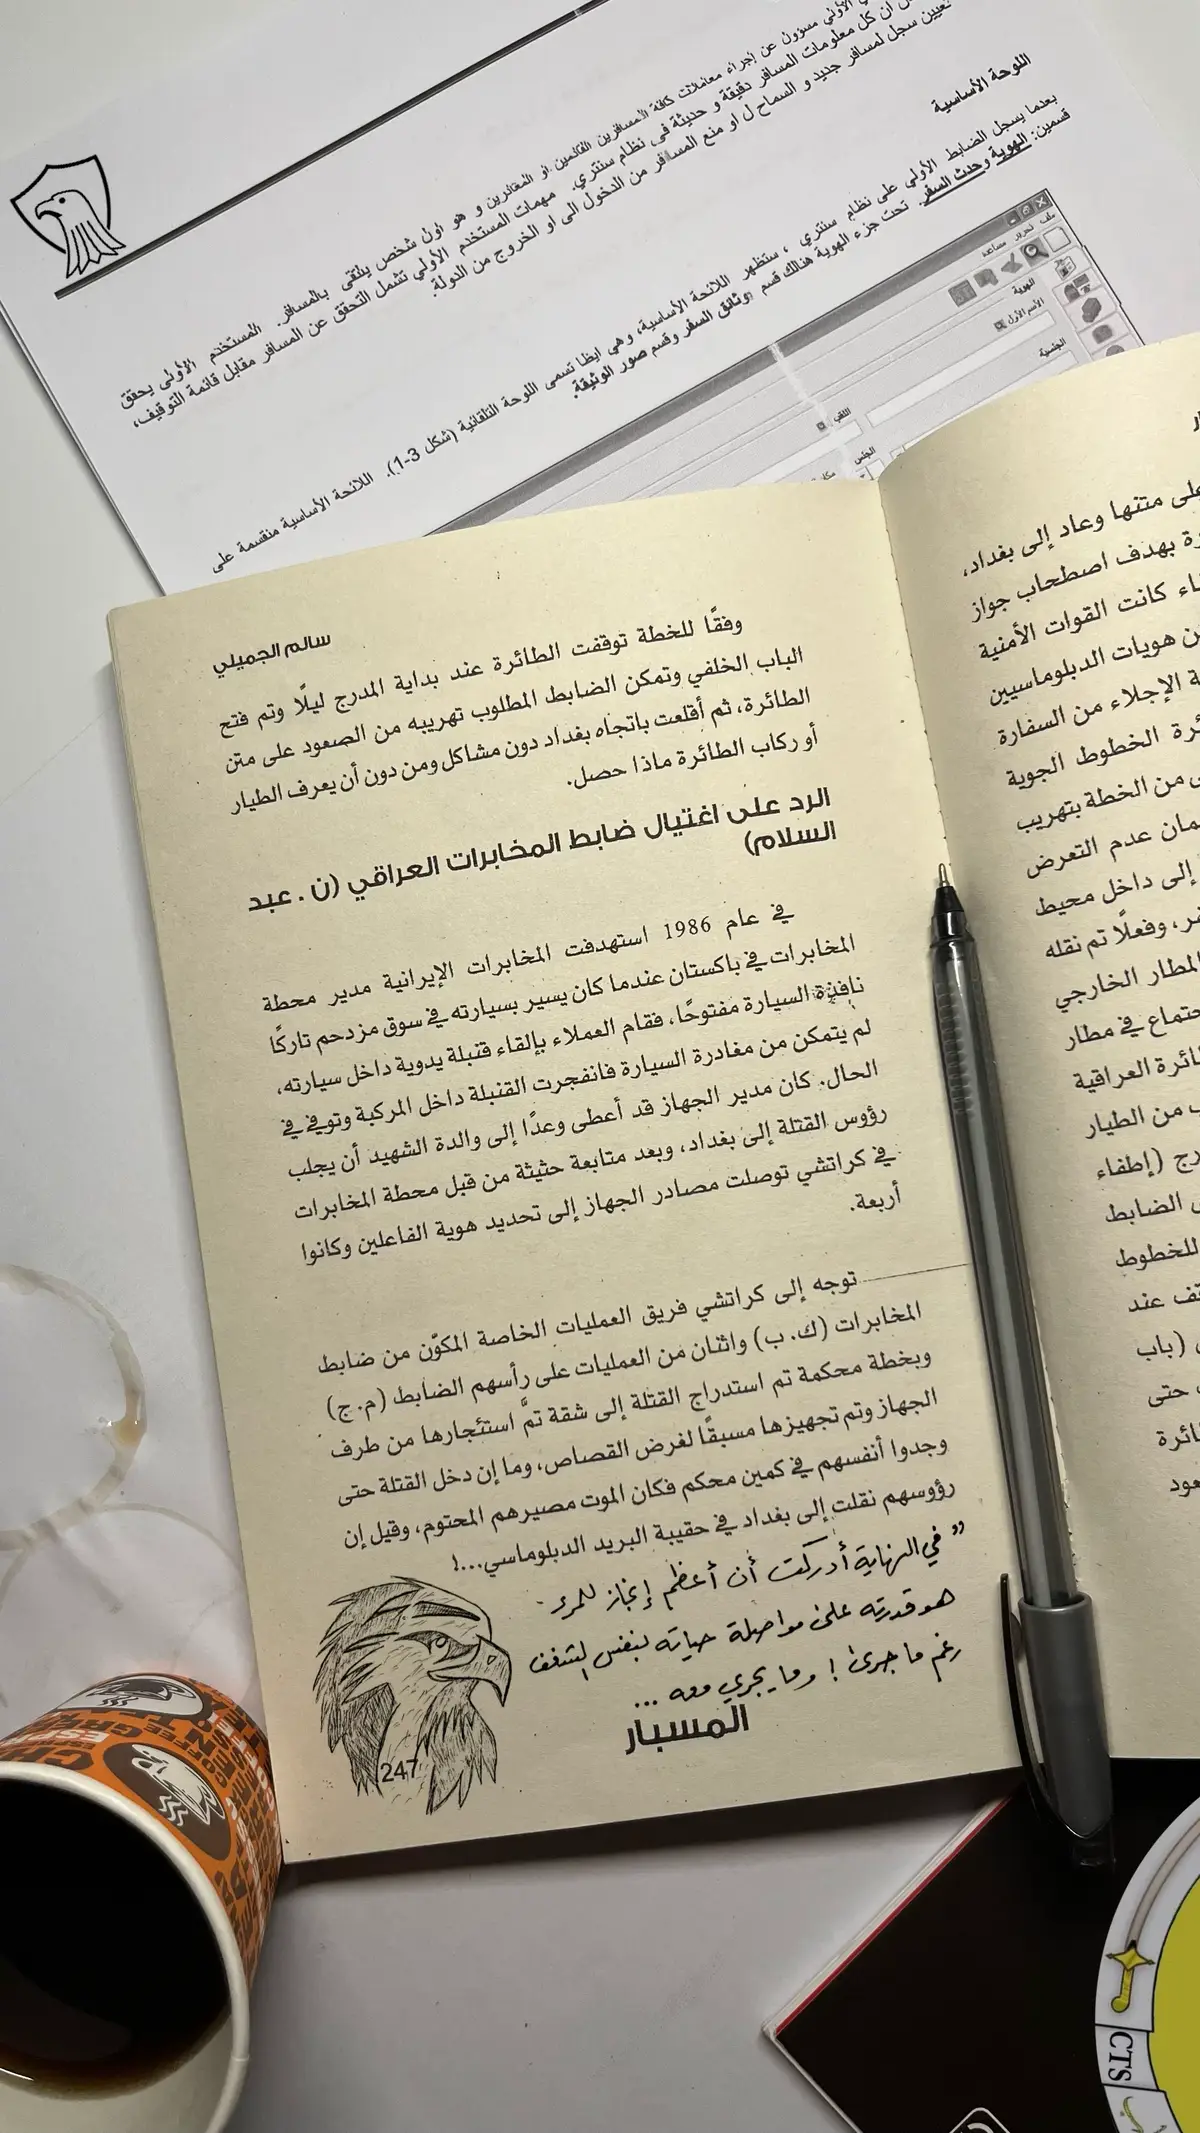 الأولي مسؤول عن إجراء معاملات كافة المسافرين القادمين او المغادرين و هو أول شخص يلتقي بالمسافر. المستخدم الأولى يحقق
ان كل معلومات المسافر دقيقة و حديثة في نظام سنتري. مهمات المستخدم الأولي تشمل التحقق عن المسافر مقابل قائمة التوقيف،
تعيين سجل لمسافر جديد و السماح ل او منع المسافر من الدخول الى او الخروج من الدولة.
اللوحة الأساسية
بعدما يسجل الضابط الأولي على نظام سنتري ، ستظهر اللائحة الأساسية، وهي ايظا تسمى اللوحة التلقائية (شكل 3-1). اللائحة الأساسية منقسمة على
قسمين: الهوية وحدث السفر. تحت جزء الهوية هنالك قسم وثائق السفر وقسم صور الوثيقة.
ملف تحرير مساعد
الهوية
الأسم الأول
الجنسية
اللقب
الجنس
على متنها وعاد إلى بغداد،
بهدف اصطحاب جواز
كانت القوات الأمنية
هويات الدبلوماسيين
الإجلاء من السفارة
الخطوط الجوية
من الخطة بتهريب
عدم التعرض
إلى داخل محيط
وفعلًا تم نقله
المطار الخارجي
في مطار
العراقية
من الطيار
(إطفاء
الضابط
للخطوط
عند
(باب
حتى
سالم الجميلي
وفقًا للخطة توقفت الطائرة عند بداية المدرج ليلًا وتم فتح
الباب الخلفي وتمكن الضابط المطلوب تهريبه من الصعود على متن
الطائرة، ثم أقلعت باتجاه بغداد دون مشاكل ومن دون أن يعرف الطيار
أو ركاب الطائرة ماذا حصل.
الرد على اغتيال ضابط المخابرات العراقي (ن . عبد
السلام)
في عام 1986 استهدفت المخابرات الإيرانية مدير محطة
المخابرات في باكستان عندما كان يسير بسيارته في سوق مزدحم تاركًا
نافذة السيارة مفتوحًا، فقام العملاء بإلقاء قنبلة يدوية داخل سيارته،
لم يتمكن من مغادرة السيارة فانفجرت القنبلة داخل المركبة وتوفي في
الحال. كان مدير الجهاز قد أعطى وعدًا إلى والدة الشهيد أن يجلب
رؤوس القتلة إلى بغداد، وبعد متابعة حثيثة من قبل محطة المخابرات
في كراتشي توصلت مصادر الجهاز إلى تحديد هوية الفاعلين وكانوا
أربعة.
توجه إلى كراتشي فريق العمليات الخاصة المكوّن من ضابط
المخابرات (ك. ب) واثنان من العمليات على رأسهم الضابط (م. ج)
وبخطة محكمة تم استدراج القتلة إلى شقة تمَّ استئجارها من طرف
الجهاز وتم تجهيزها مسبقًا لغرض القصاص، وما إن دخل القتلة حتى
وجدوا أنفسهم في كمين محكم فكان الموت مصيرهم المحتوم، وقيل إن
رؤوسهم نقلت إلى بغداد في حقيبة البريد الدبلوماسي...!
" في النهاية أدركت أن أعظم إنجاز للمرء
هو قدرته على مواصلة حياته بنفس الشغف
رغم ما جرى ! وما يجري معه ...
المسبار
247
COFFEE
CTS